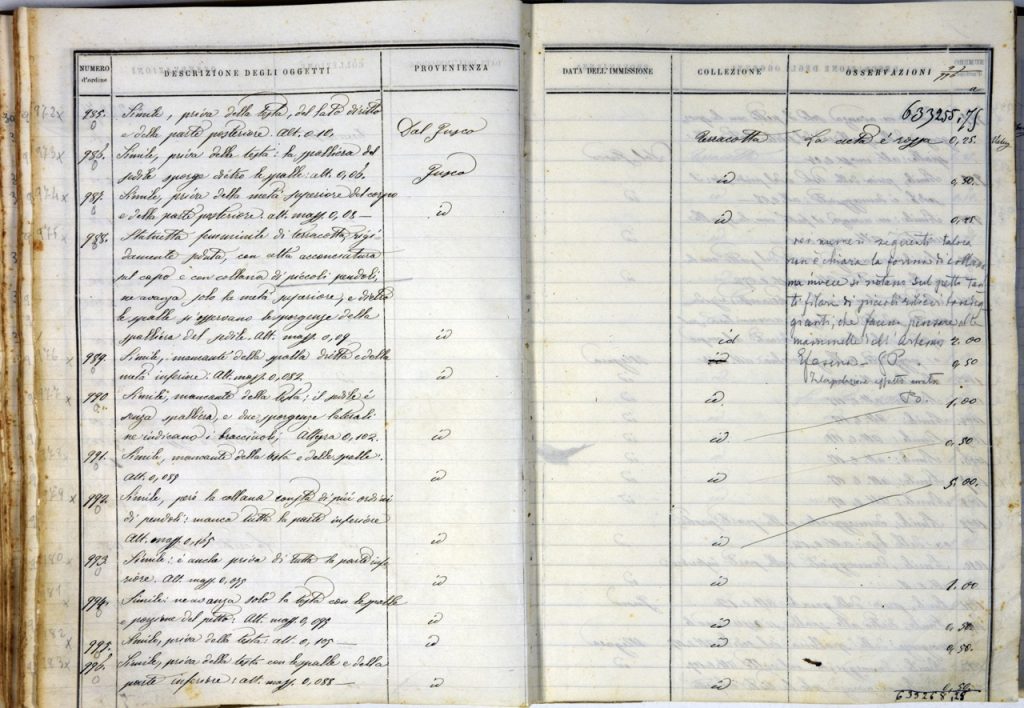 NUMERO d'ordine
DESCRIZIONE DEGLI OGGETTI
PROVENIENZA
985. Simile, priva della testa, del lato diritto
e della parte posteriore. Alt. 0,10.
Dal Fusco
986. Simile, priva della testa: la spalliera del
sedile sporge dietro le spalle: alt. 0,06.
Fusco
987. Simile, priva della metà superiore del corpo
e della parte posteriore. alt. mass. 0,08 —
id
988. Statuetta femminile di terracotta, rigi-
damente seduta, con alta acconciatura
sul capo e con collana di piccoli pendoli:
ne avanza solo la metà superiore, e dietro
le spalle si osservano le sporgenze della
spalliera del sedile. Alt. mass. 0,09
id
989. Simile, mancante della spalla diritta e della
metà inferiore. Alt. mass. 0,082.
id
990. Simile, mancante della testa: il sedile è
senza spalliera, e due sporgenze laterali
ne indicano i braccioli. Altezza 0,102.
id
991. Simile, mancante della testa e delle spalle.
Alt. 0,089
id
992. Simile, però la collana consta di più ordini
di pendoli: manca tutta la parte inferiore
Alt. mass. 0,105
id
993. Simile: è anche priva di tutta la parte infe-
riore. Alt. mass. 0,095
id
994. Simile: ne avanza solo la testa con le spalle
e porzione del petto: Alt. mass. 0,095
id
995. Simile, priva della testa: alt. 0,105 —
id
996. Simile, priva della testa con le spalle e della
parte inferiore: alt. mass. 0,088 —
id
DATA DELL'IMMISSIONE
COLLEZIONE
OSSERVAZIONI
633255,75
Terracotta
La creta è rossa
0,25.
id
0,50.
id
0,25
Nei numeri seguenti talora
non è chiara la forma di collana
ma invece si notano sul petto tan-
ti filari di piccoli rilievi
che fanno pensare alle
mammelle di Artemis
id
2.00
Efesina — GP.
id
0,50
id
1,00
id
0,50
id
5,00.
id
id
1.00
id
0,50
id
0,50.
id
0,50.
633268,25